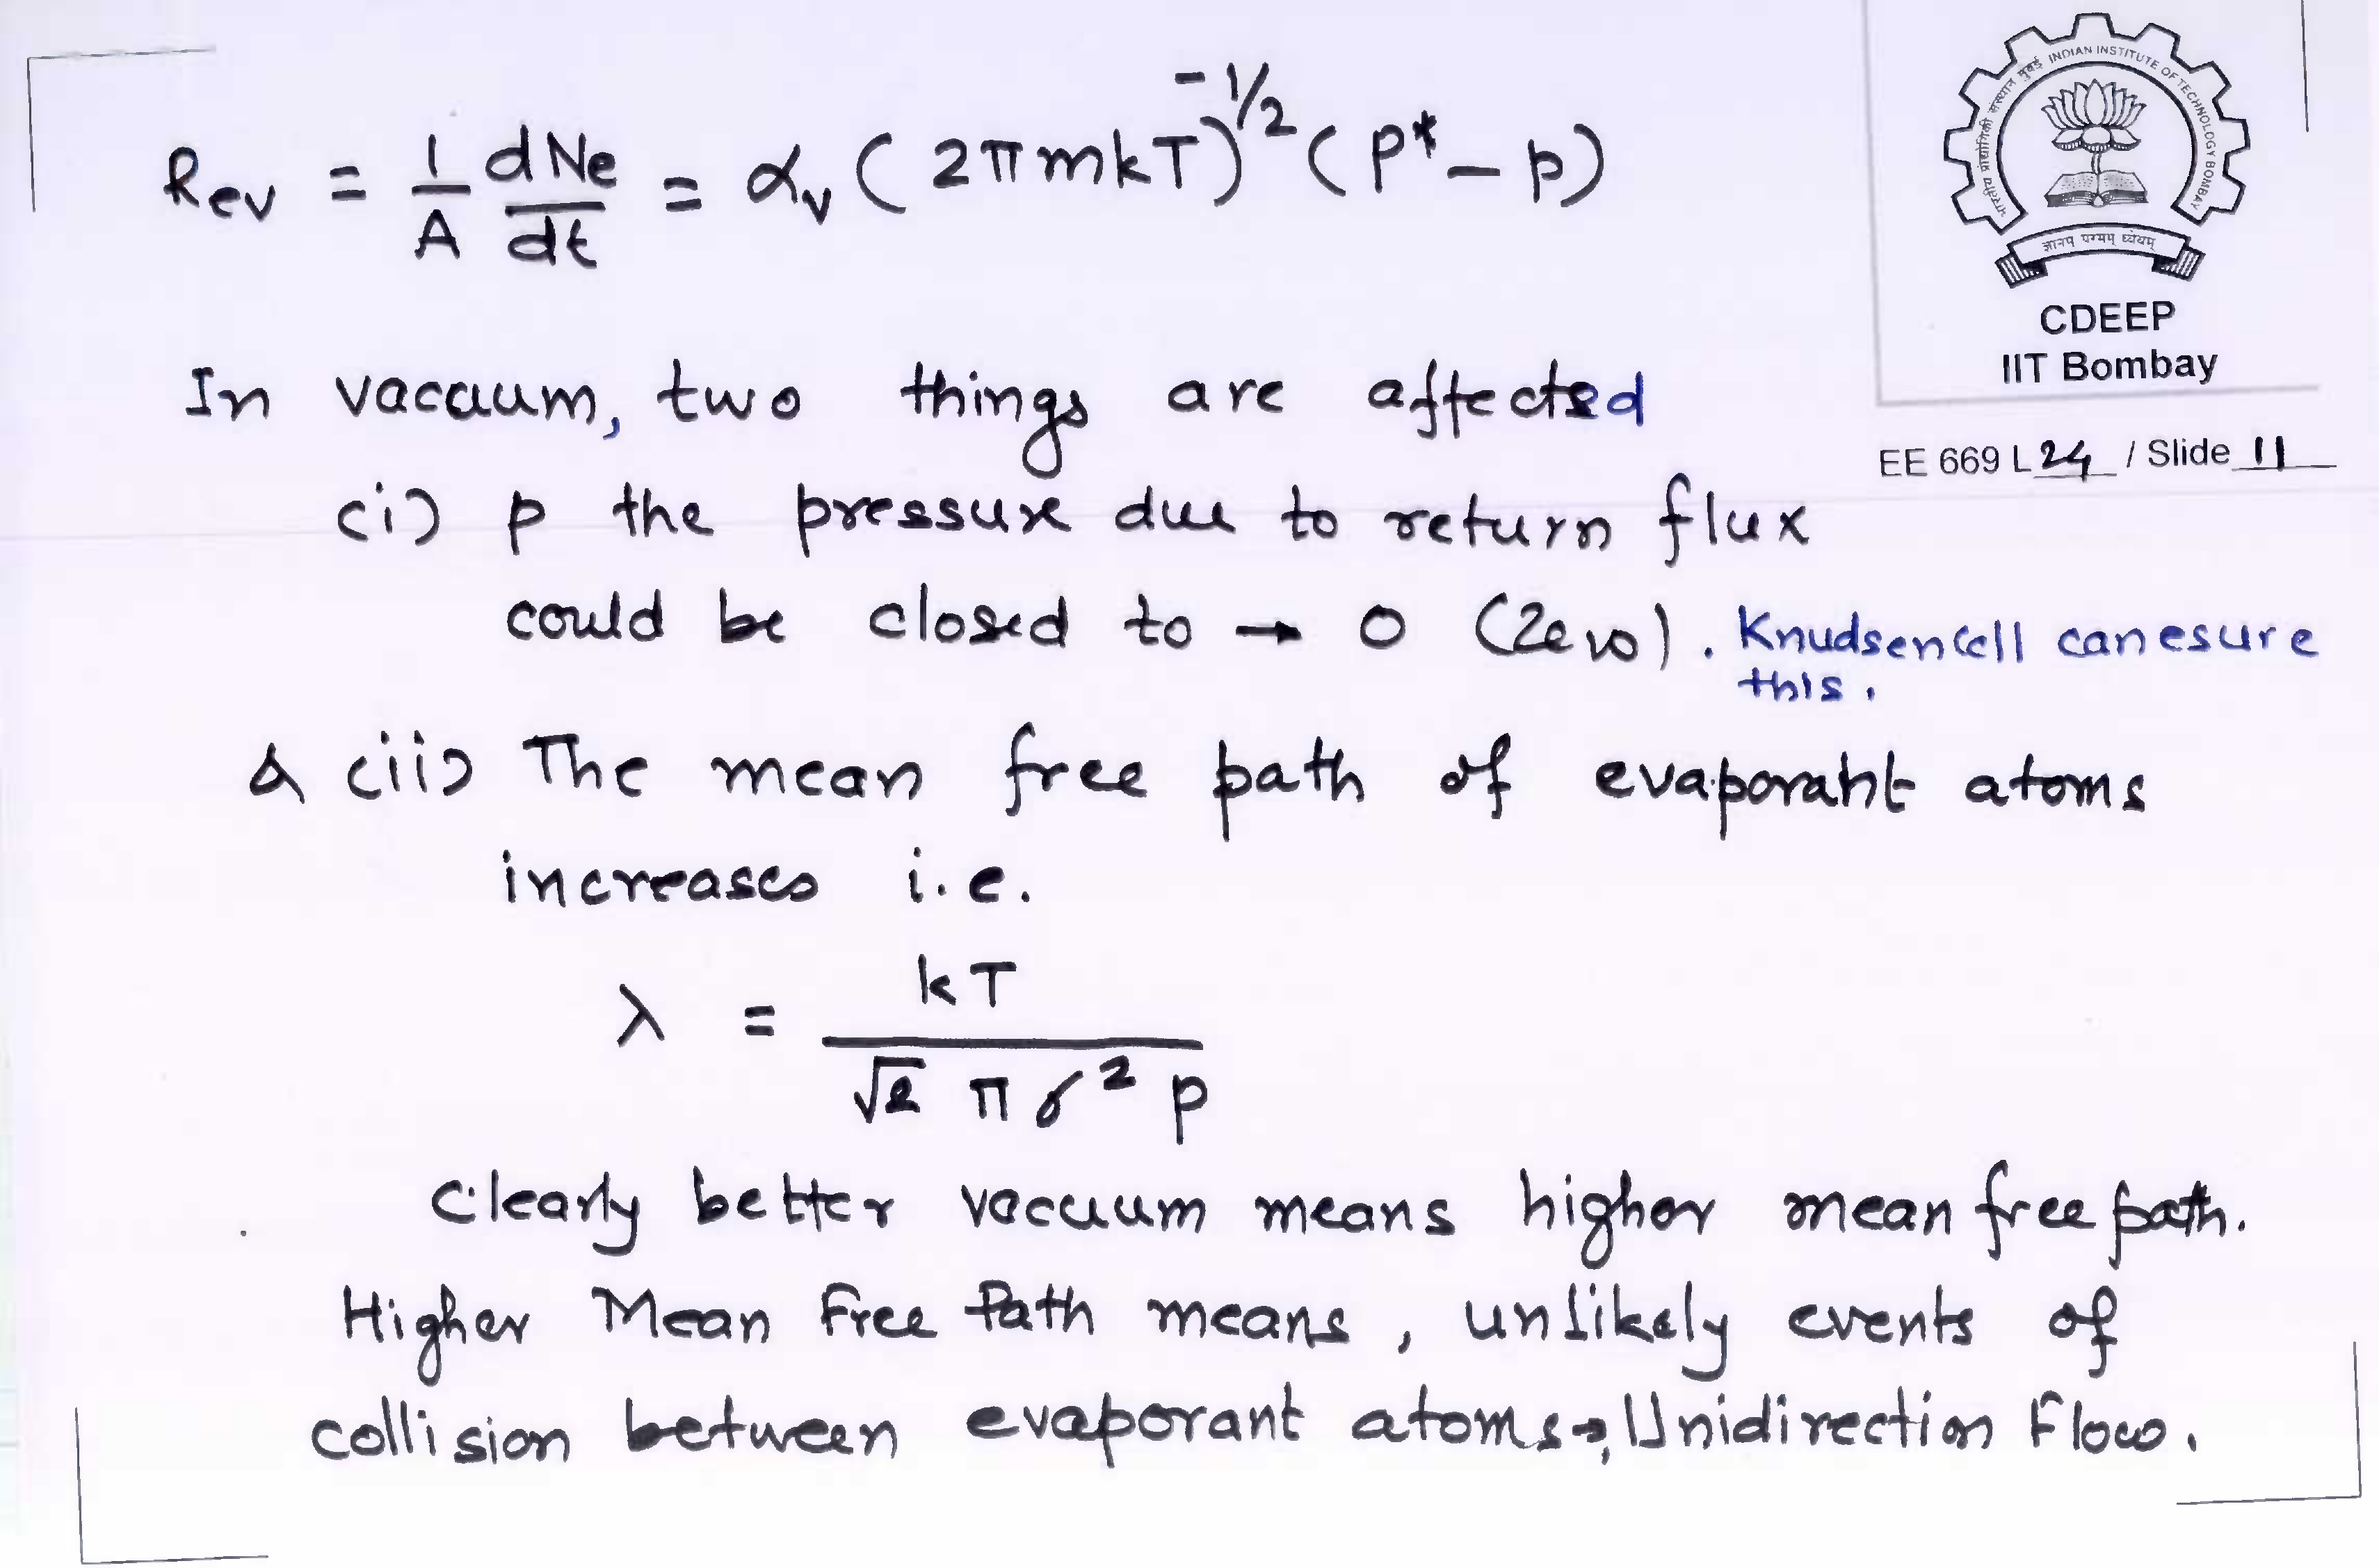 Rev = 1/A dNe/dt = αᵥ (2πmkT)^-1/2 (p* - p)
INDIAN INSTITUTE OF TECHNOLOGY BOMBAY
भारतीय प्रौद्योगिकी संस्थान मुंबई
ज्ञानम् परमम् ध्येयम्
CDEEP
IIT Bombay
EE 669 L 24 / Slide 11
In vacuum, two things are affected
(i) p the pressure due to return flux
could be closed to → 0 (Zero). Knudsen Cell can esure
this.
& (ii) The mean free path of evaporant atoms
increases i.e.
λ = kT / √2 π σ² p
Clearly better vacuum means higher mean free path.
Higher Mean Free Path means, unlikely events of
collision between evaporant atoms →, Unidirection Flow.